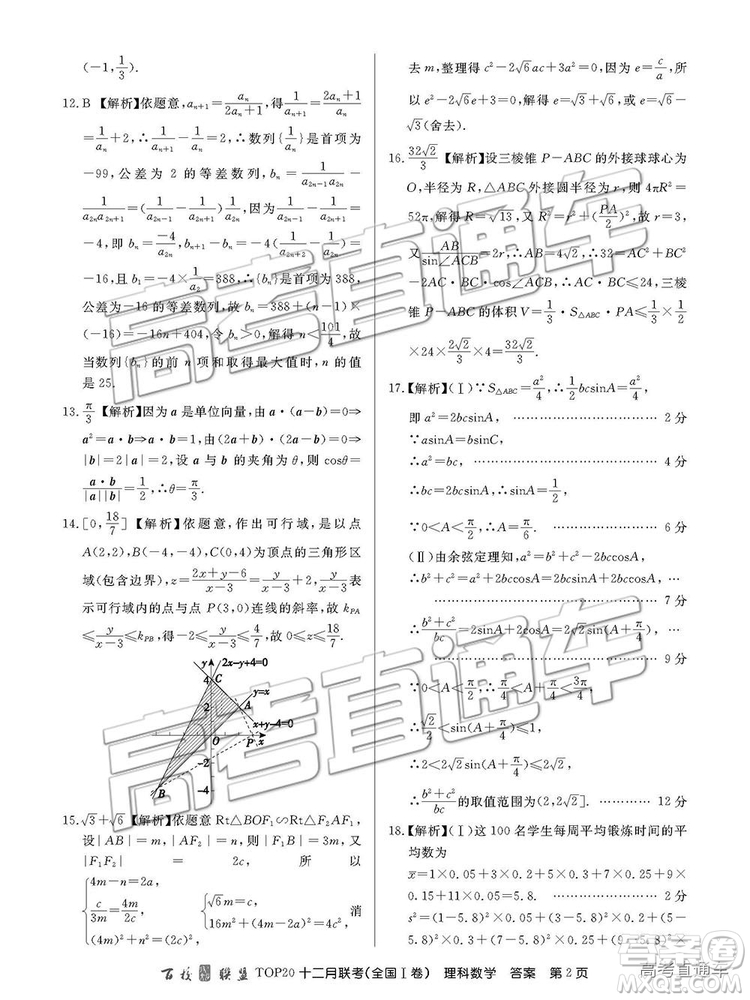 (-1,1/3).
12.B 【解析】依题意,aₙ₊₁=aₙ/(2aₙ+1),得1/aₙ₊₁=(2aₙ+1)/aₙ
=1/aₙ+2,∴1/aₙ₊₁-1/aₙ=2,∴数列{1/aₙ}是首项为
-99,公差为 2 的等差数列,
-4,即 bₙ
-16,且 b₁=-4×1/a₂=388,∴{bₙ}是首项为388,
公差为-16的等差数列,故bₙ=388+(n-1)×
(-16)=-16n+404,令bₙ>0,解得n<101/4,故
当数列{bₙ}的前 n 项和取得最大值时,n 的值
是25.
13.π/3 【解析】因为a是单位向量,由a·(a-b)=0⇒
a²=a·b⇒a·b=1,由(2a+b)·(2a-b)=0⇒
|b|=2|a|=2,设 a 与 b 的夹角为θ,则cosθ=
a·b/(|a||b|)=1/2,∴θ=π/3.
14.[0,18/7] 【解析】依题意,作出可行域,是以点
A(2,2),B(-4,-4),C(0,4)为顶点的三角形区
域(包含边界),z=(2x+y-6)/(x-3)=2+y/(x-3),y/(x-3)表
示可行域内的点与点 P(3,0)连线的斜率,故 kPA
≤y/(x-3)≤kPB,得-2≤y/(x-3)≤4/7,故0≤z≤18/7.
y 2x-y+4=0
4 C
y=x
2 A
x+y-4=0
O P x
-2
B -4
15.√3+√6 【解析】依题意 Rt△BOF₁∽Rt△F₂AF₁,
设|AB|=m,|AF₂|=n,则|BF₁|=3m,又
|F₁F₂| = 2c, 所 以
{4m-n=2a, c/3m=4m/2c, 4m²+... {√6m=c, 16m²+(4m-2a)²=4c², 消
去 m,整理得 c²-2√6ac+3a²=0,因为 e=c/a,所
以 e²-2√6e+3=0,解得 e=√3+√6或 e=√6-
√3(舍去).
16.32√2/3 【解析】设三棱锥 P-ABC 的外接球球心为
O,半径为 R,△ABC外接圆半径为 r,则 4πR²=
52π,解得 R=√13,又 R²=r²+(PA/2)²,故 r=3,
又AB/sin∠ACB=2r,∴AB=4√2,∴32=AC²+BC²
-2AC·BC·cos∠ACB,∴AC·BC≤24,三棱
锥 P-ABC 的体积 V=1/3·S△ABC·PA≤1/3×1/2
×24×2√2/3×4=32√2/3.
17.【解析】(Ⅰ)∵S△ABC=a²/4,∴1/2bcsinA=a²/4,
即 a²=2bcsinA, ………… 2 分
∵asinA=bsinC,
∴a²=bc, ………… 4 分
∴bc=2bcsinA,∴sinA=1/2,
∵0<A<π/2,∴A=π/6. ………… 6 分
(Ⅱ)由余弦定理知,a²=b²+c²-2bccosA,
∴b²+c²=a²+2bccosA=2bcsinA+2bccosA,
………… 7 分
∴(b²+c²)/bc=2sinA+2cosA=2√2sin(A+π/4),
………… 9 分
∵0<A<π/2,∴π/4<A+π/4<3π/4,
∴√2/2<sin(A+π/4)≤1,
∴2<2√2sin(A+π/4)≤2√2,
∴(b²+c²)/bc的取值范围为(2,2√2]. ………… 12 分
18.【解析】(Ⅰ)这 100 名学生每周平均锻炼时间的平
均数为
x̄=1×0.05+3×0.2+5×0.3+7×0.25+9×
0.15+11×0.05=5.8. ………… 2 分
s²=(1-5.8)²×0.05+(3-5.8)²×0.2+(5-
5.8)²×0.3+(7-5.8)²×0.25+(9-5.8)²×
百校联盟 TOP20 十二月联考(全国Ⅰ卷) 理科数学 答案 第2页
高考直通车
高考直通车
高考直通车